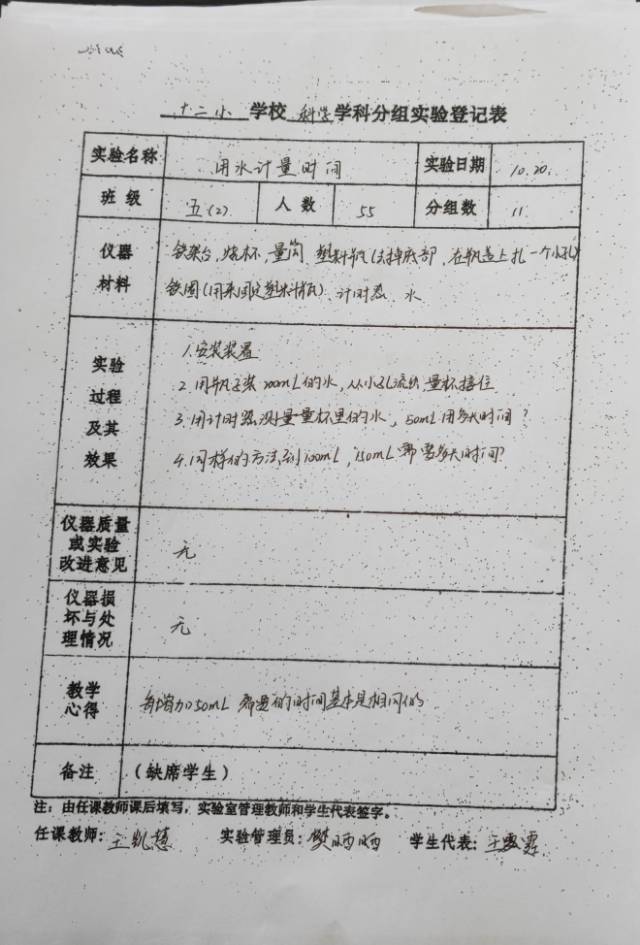 十二小 学校 科学 学科分组实验登记表
实验名称 用水计量时间 实验日期 10.20.
班级 五(2) 人数 55 分组数 11.
仪器材料 铁架台、烧杯、量筒、塑料瓶(去掉底部、在瓶盖上扎一个小孔)
铁圈(用来固定塑料瓶)、计时器、水
实验过程及其效果 1.安装装置
2.用瓶子装 200mL的水,从小孔流出,量杯接住
3.用计时器测量量杯里的水,50mL用多长时间?
4.同样的方法,到100mL,150mL需要多长时间?
仪器质量或实验改进意见 无
仪器损坏与处理情况 无
教学心得 每增加50mL 需要的时间基本是相同的
备注 (缺席学生)
注:由任课教师课后填写,实验室管理教师和学生代表签字。
任课教师:王凯慧 实验管理员:樊晒晒 学生代表: